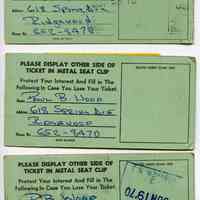 Address 618 Spring Ave
Ridgewood
Phone No. 652-8470
PLEASE DISPLAY OTHER SIDE OF
TICKET IN METAL SEAT CLIP
Protect Your Interest And Fill in The
Following In Case You Lose Your Ticket
Name Paul B. Wood
Address 618 Spring Ave
Ridgewood
Phone No. 652-8470
PLEASE DISPLAY OTHER SIDE OF
TICKET IN METAL SEAT CLIP
Protect Your Interest And Fill in The
Following In Case You Lose Your Ticket
Name P.B. Wood